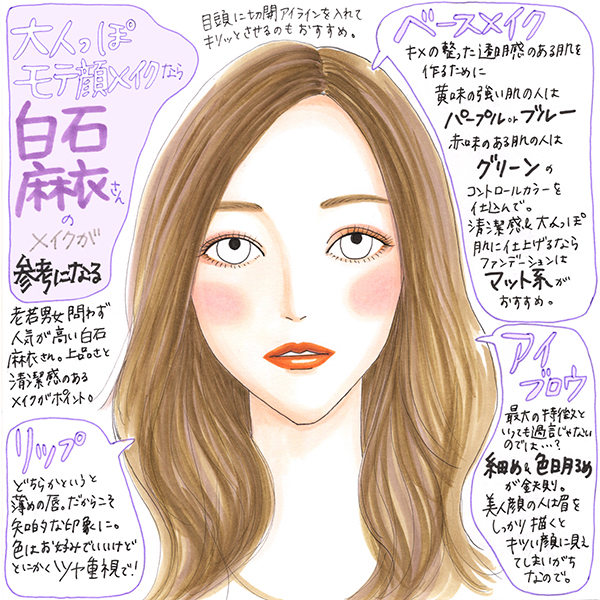 大人っぽ
モテ顔メイクなら
白石
麻衣さん
の
メイクが
参考になる
老若男女問わず
人気が高い白石
麻衣さん。上品さと
清潔感のある
メイクがポイント。
目頭に切開アイラインを入れて
キリッとさせるのもおすすめ。
ベースメイク
キメの整った透明感のある肌を
作るために
黄味の強い肌の人は
パープルorブルー
赤味のある肌の人は
グリーンの
コントロールカラーを
仕込んで。
清潔感&大人っぽ
肌に仕上げるなら
ファンデーションは
マット系が
おすすめ。
アイ
ブロウ
最大の特徴と
いっても過言じゃない
のでは…?
細め&色明るめ
が鉄則。
美人顔の人は眉を
しっかり描くと
キツい顔に見え
てしまいがち
なので。
リップ
どちらかというと
薄めの唇。だからこそ
知的な印象に。
色はお好みでいいけど
とにかくツヤ重視で!